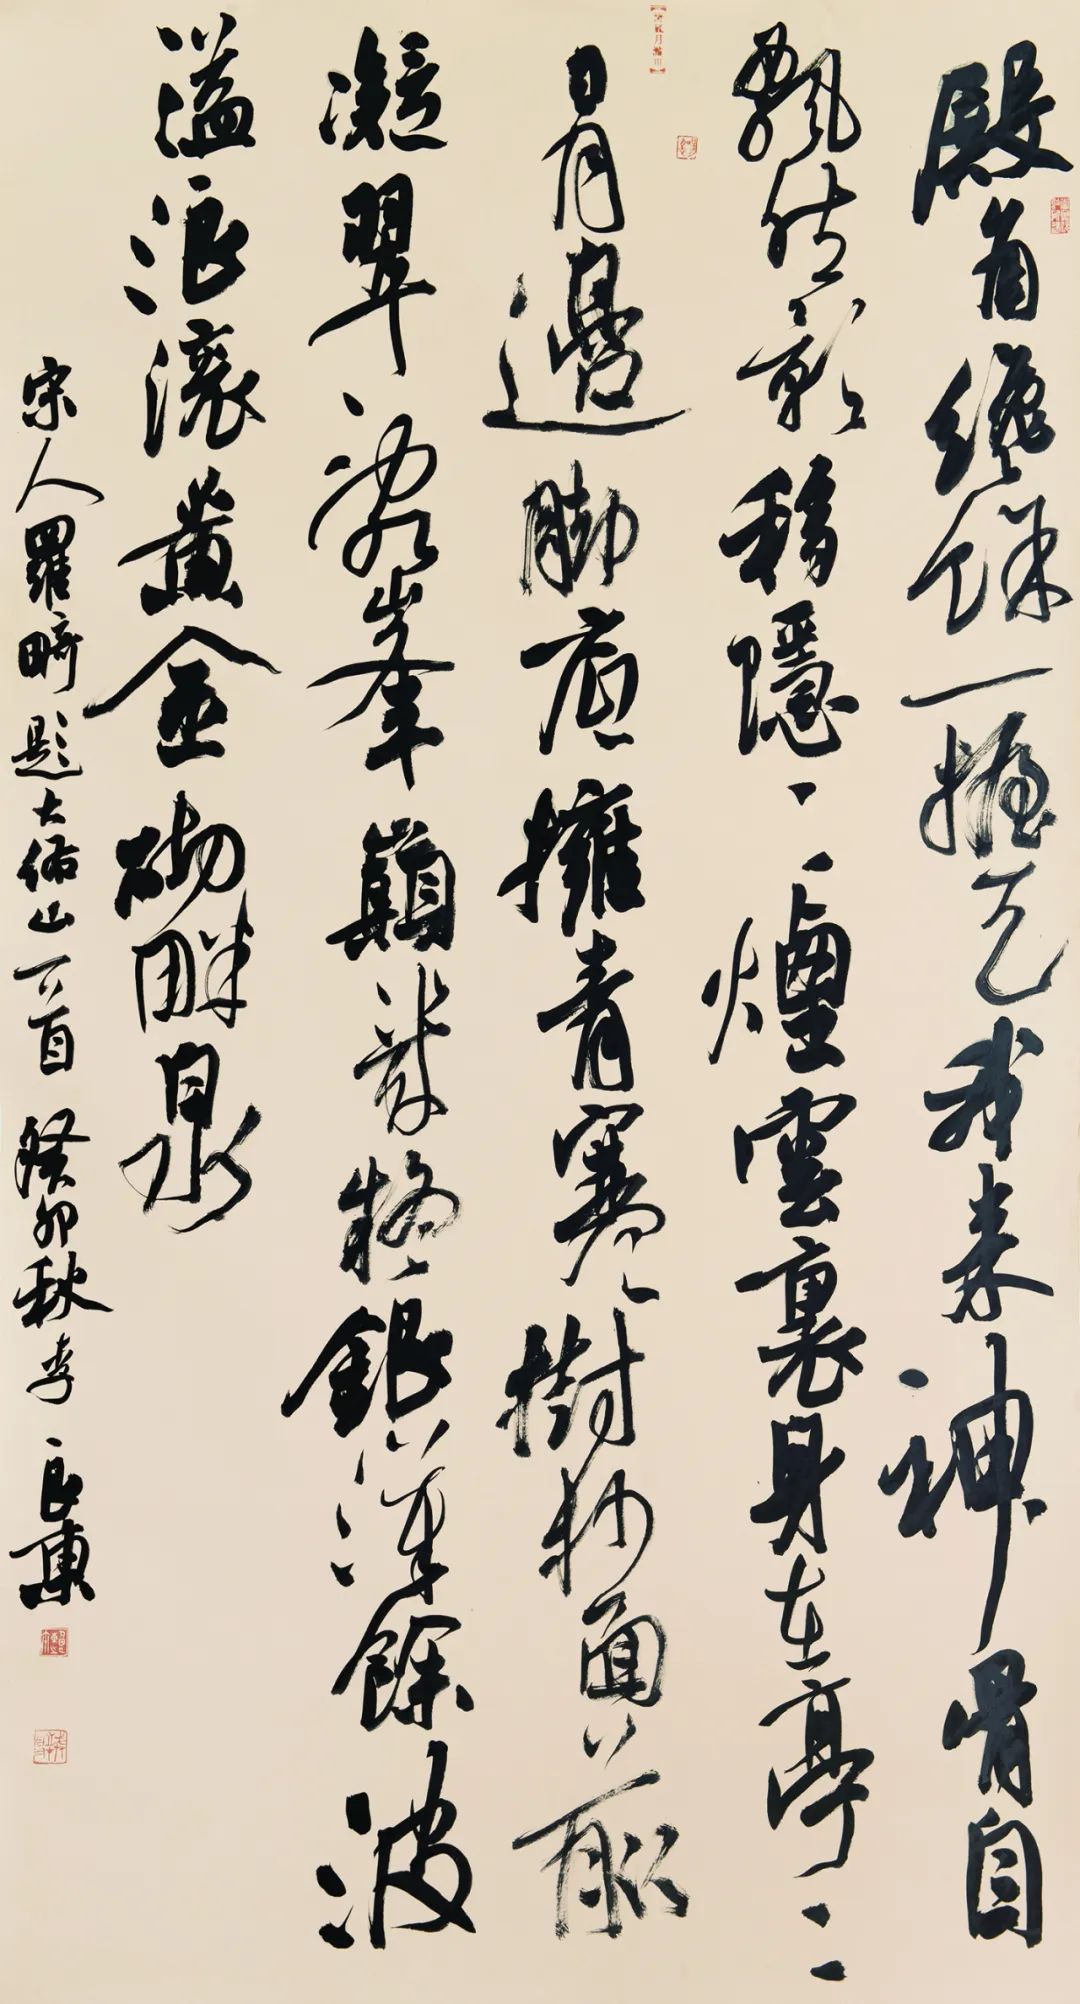 殿角纔餘一握天我來神骨自
飄然影移隱隱煙雲裏身在亭亭
日月邊脚底擁青寒樹杪面前
凝翠峯巔銀漢餘波
溢浪滾黃金砌畔泉
宋人羅畸題大佑山一首癸卯秋李良東